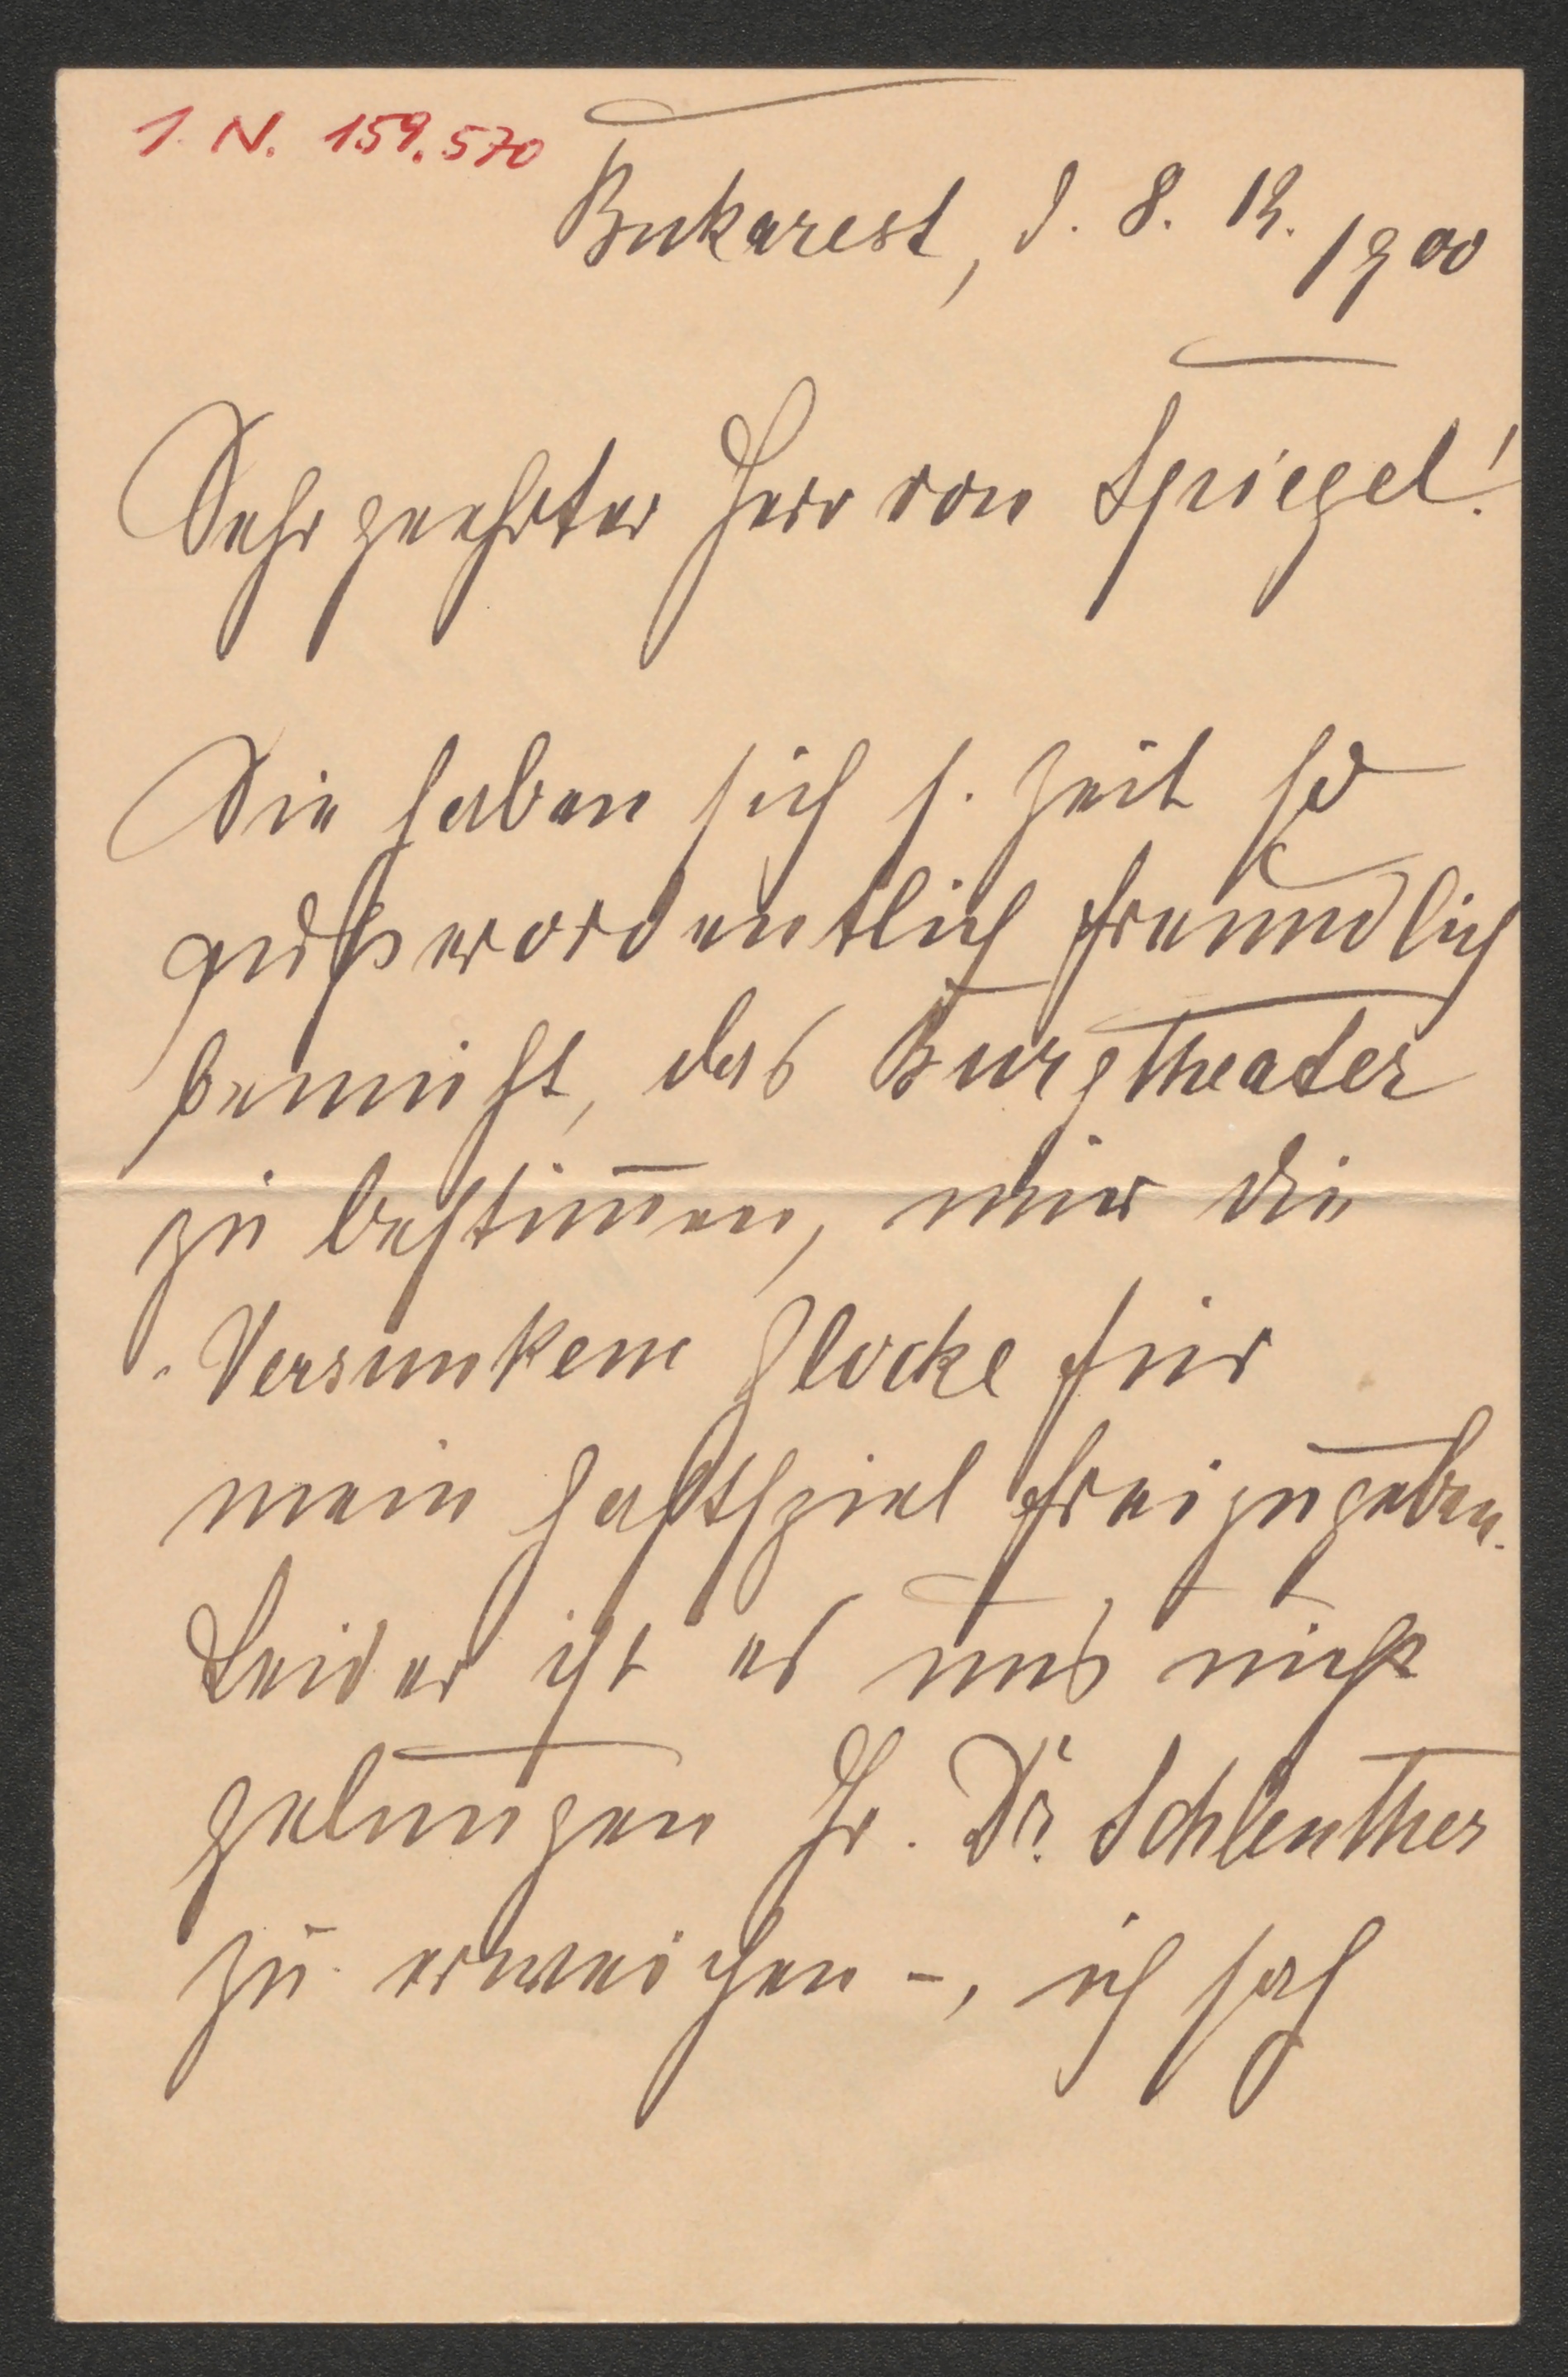 I. N. 159.570
Bukarest, d. 8. 12. 1900
Sehr geehrter Herr von Spiegel!
Sie haben sich s. Zeit so
außerordentlich freundlich
bemüht, das Burgtheater
zu bestim̅en, mir die
Versunkene Glocke für
mein Gastspiel freizugeben.
Leider ist es uns nicht
gelungen Hr. Dr. Schlenther
zu erweichen –, ich sah